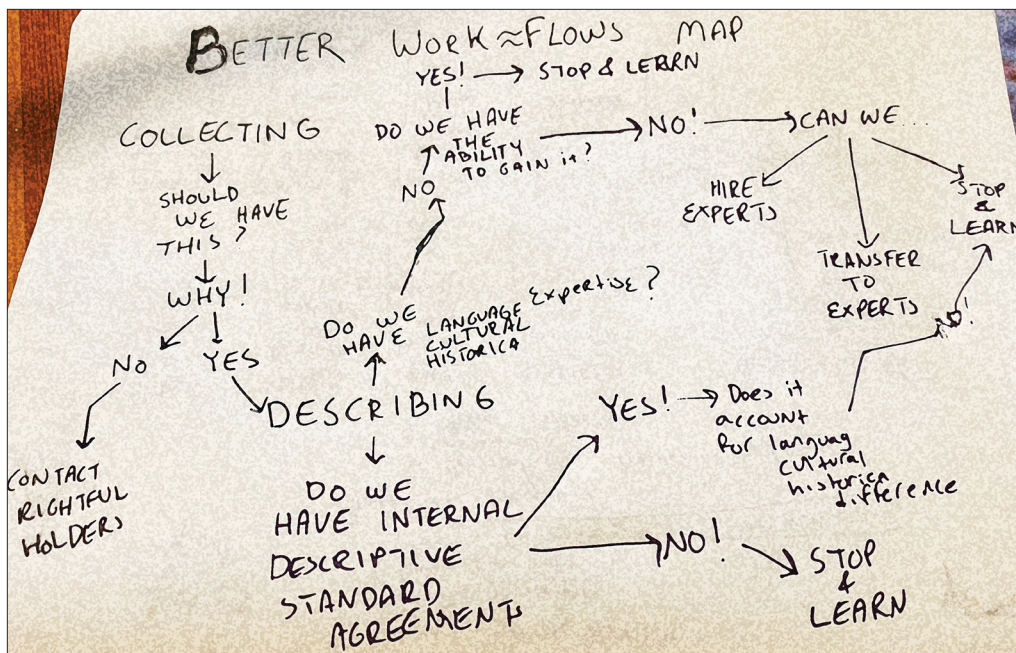 BETTER WORK≈FLOWS MAP
YES! → STOP & LEARN
COLLECTING
DO WE HAVE
THE
ABILITY
TO GAIN it?
NO! → CAN WE...
SHOULD
WE HAVE
THIS?
NO
HIRE
EXPERTS
STOP
&
LEARN
TRANSFER
TO
EXPERTS
WHY!
DO WE
HAVE
LANGUAGE Expertise?
CULTURAL
HISTORICA
NO!
NO
YES
DESCRIBING
YES! → Does it
account
for languag
cultural
historica
difference
CONTACT
RIGHTFUL
HOLDERS
DO WE
HAVE INTERNAL
DESCRIPTIVE
STANDARD
AGREEMENTS
NO!
STOP
&
LEARN